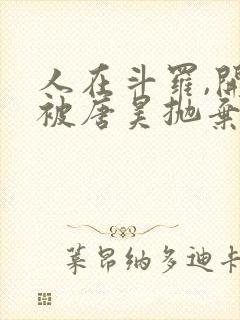 人在斗罗,開
被唐昊抛棄
莱昂纳多迪卡